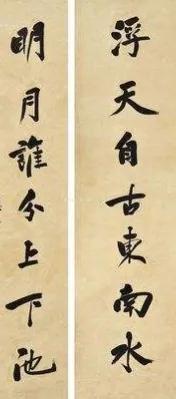 浮天自古東南水
明月誰分上下池